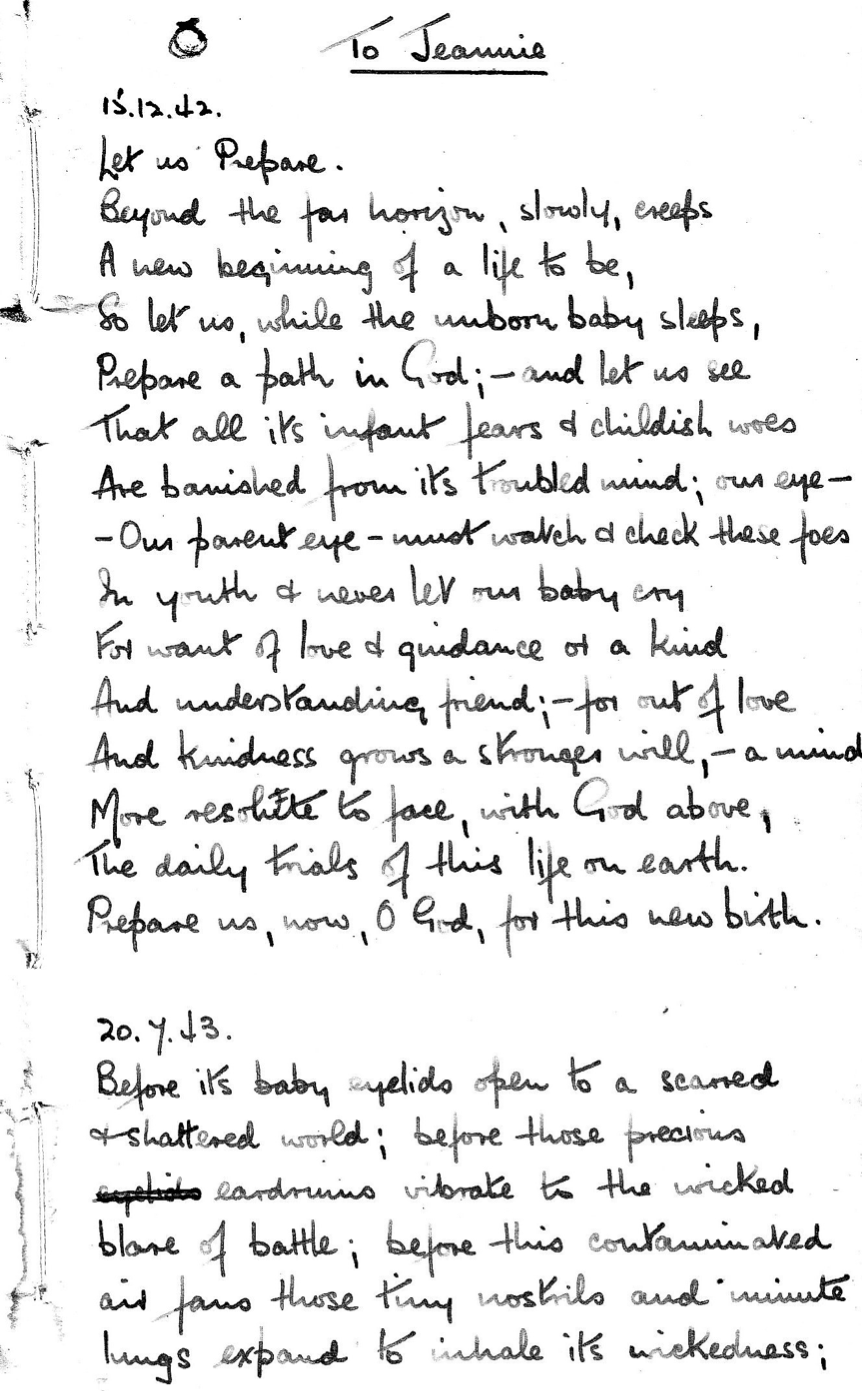 To Jeannie
15.12.42.
Let us Prepare.
Beyond the far horizon, slowly, creeps
A new beginning of a life to be,
So let us, while the unborn baby sleeps,
Prepare a path in God; – and let us see
That all its infant fears & childish woes
Are banished from its troubled mind; our eye –
– Our parent eye – must watch & check these foes
In youth & never let our baby cry
For want of love & guidance or a kind
And understanding friend; – for out of love
And kindness grows a stronger will, – a mind
More resolute to face, with God above,
The daily trials of this life on earth.
Prepare us, now, O God, for this new birth.
20.7.43.
Before its baby eyelids open to a scarred
& shattered world; before those precious
eyelids eardrums vibrate to the wicked
blare of battle; before this contaminated
air fans those tiny nostrils and minute
lungs expand to inhale its wickedness;